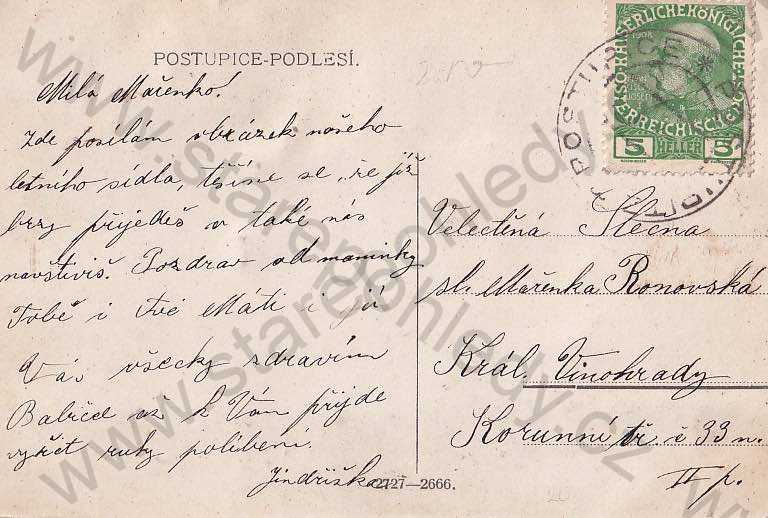 POSTUPICE-PODLESÍ.
Milá Mařenko!
Zde posílám obrázek našeho
letního sídla, těšíme se, že již
brzy přijedeš a také nás
navštíviš. Pozdrav od maminky
Tobě i tvé Máti i já
Vás všecky zdravím
Babičce až k Vám přijde
vyřiť ruky políbení
Jindřiška
2727—2666.
KAISERLICHE KÖNIGLICHE
ÖSTERREICHISCHE
1908
5 HELLER 5
POSTUPICE *
Velectěná Slečna
sl. Mařenka Ronovská
Král. Vinohrady
Korunní tř. č 33 n.
II p.
www.starepohledy.cz
www.starepohledy.cz